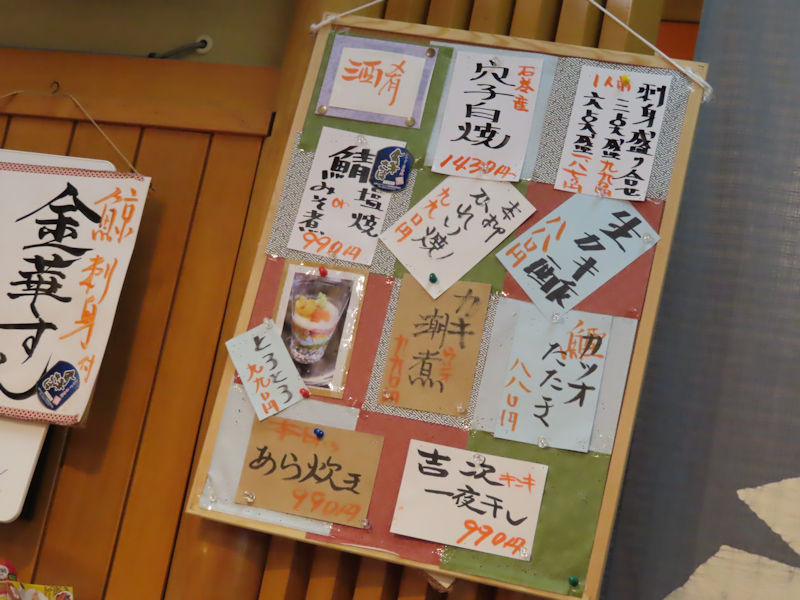 鯨刺身付
金華すし
酒肴
石巻産
穴子白焼
1430円
刺身盛り合せ
1人前
三点盛 九九〇円
六点盛 一八七〇円
鯖塩焼
or
みそ煮
990円
ひれ焼
九九〇円
生カキ酢
八八〇円
カキ潮煮
九九〇円
カツオ
たたき
八八〇円
とろとろ
九九〇円
あら炊き
990円
吉次 キンキ
一夜干し
990円